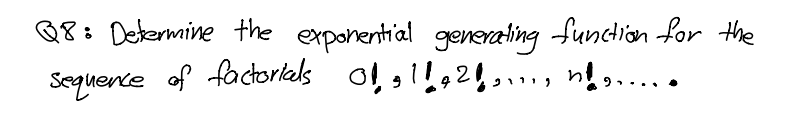 Q8: Determine the exponential generating function for the
sequence of factorials 0!, 1!, 2!, ...., n!, .....